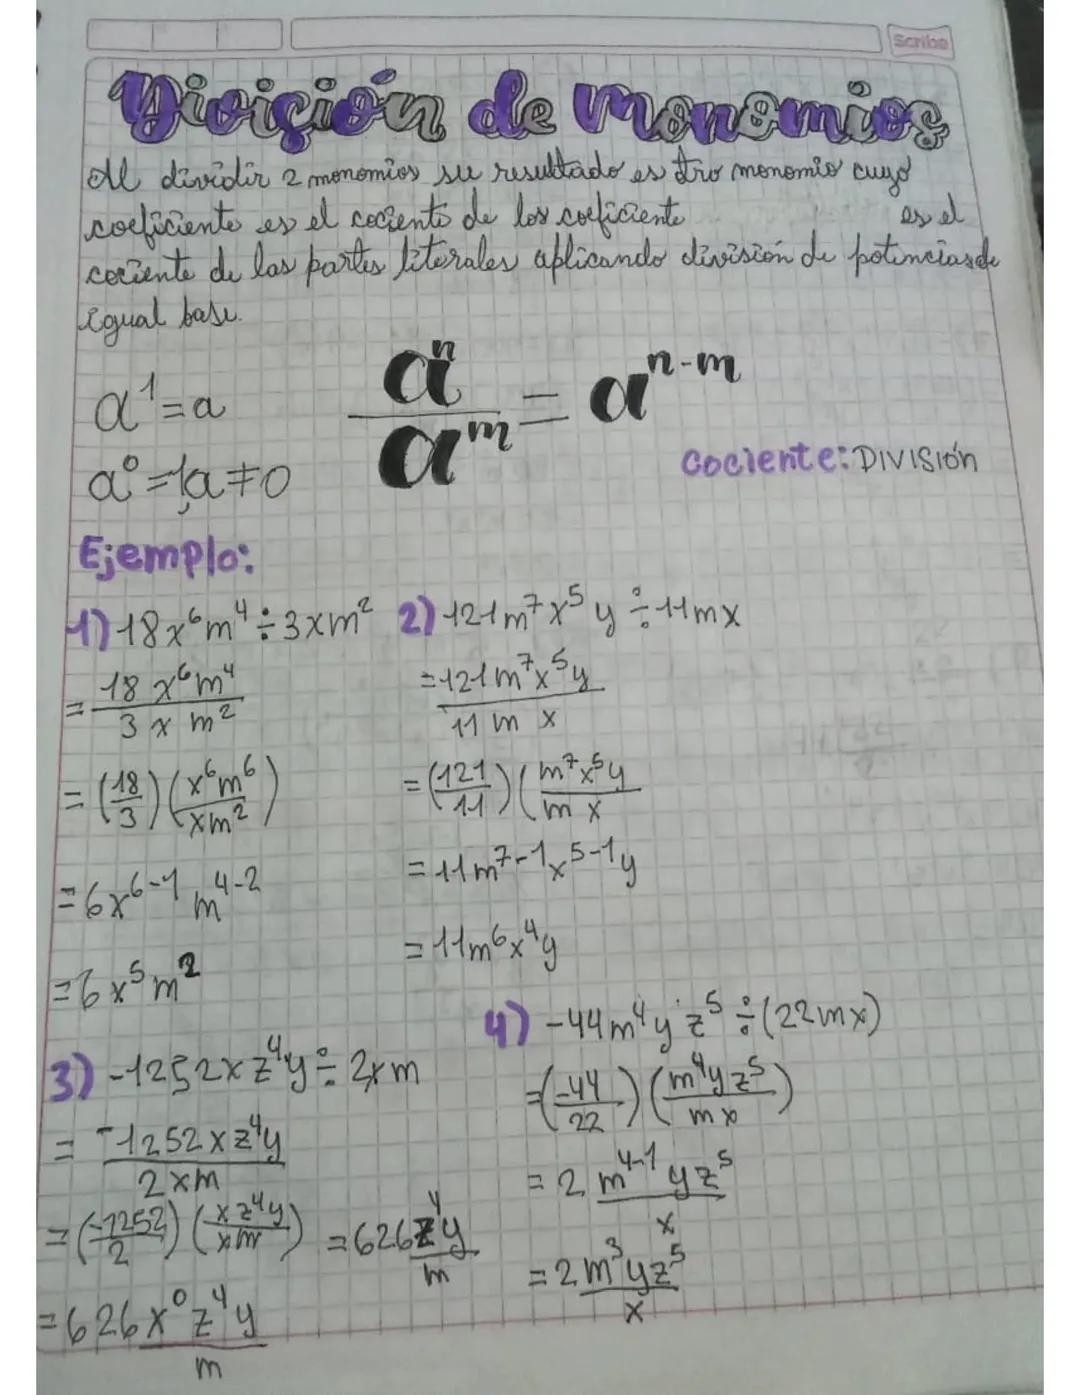 Scribe
División de monomios
Al dividir 2 monomios su resultado es otro monomio cuyo
coeficiente es el cociente de los coeficiente es el
cociente de las partes literales aplicando división de potencias de
igual base.
a¹=a
aⁿ/aᵐ = aⁿ⁻ᵐ
a⁰=1,a≠0
cociente: DIVISIÓN
Ejemplo:
1) 18x⁶m⁴÷3xm²
= 18x⁶m⁴/3xm²
= (18/3)(x⁶m⁶/xm²)
= 6x⁶⁻¹m⁴⁻²
= 6x⁵m²
2) 121m⁷x⁵y÷11mx
= 121m⁷x⁵y/11mx
= (121/11)(m⁷x⁵y/mx
= 11m⁷⁻¹x⁵⁻¹y
= 11m⁶x⁴y
3) -1252xz⁴y÷2xm
= -1252xz⁴y/2xm
= (-1252/2)(xz⁴y/xm)
= 626x⁰z⁴y/m
= 626z⁴y/m
4) -44m⁴yz⁵÷(22mx)
= (-44/22)(m⁴yz⁵/mx)
= 2m⁴⁻¹yz⁵/x
= 2m³yz⁵/x